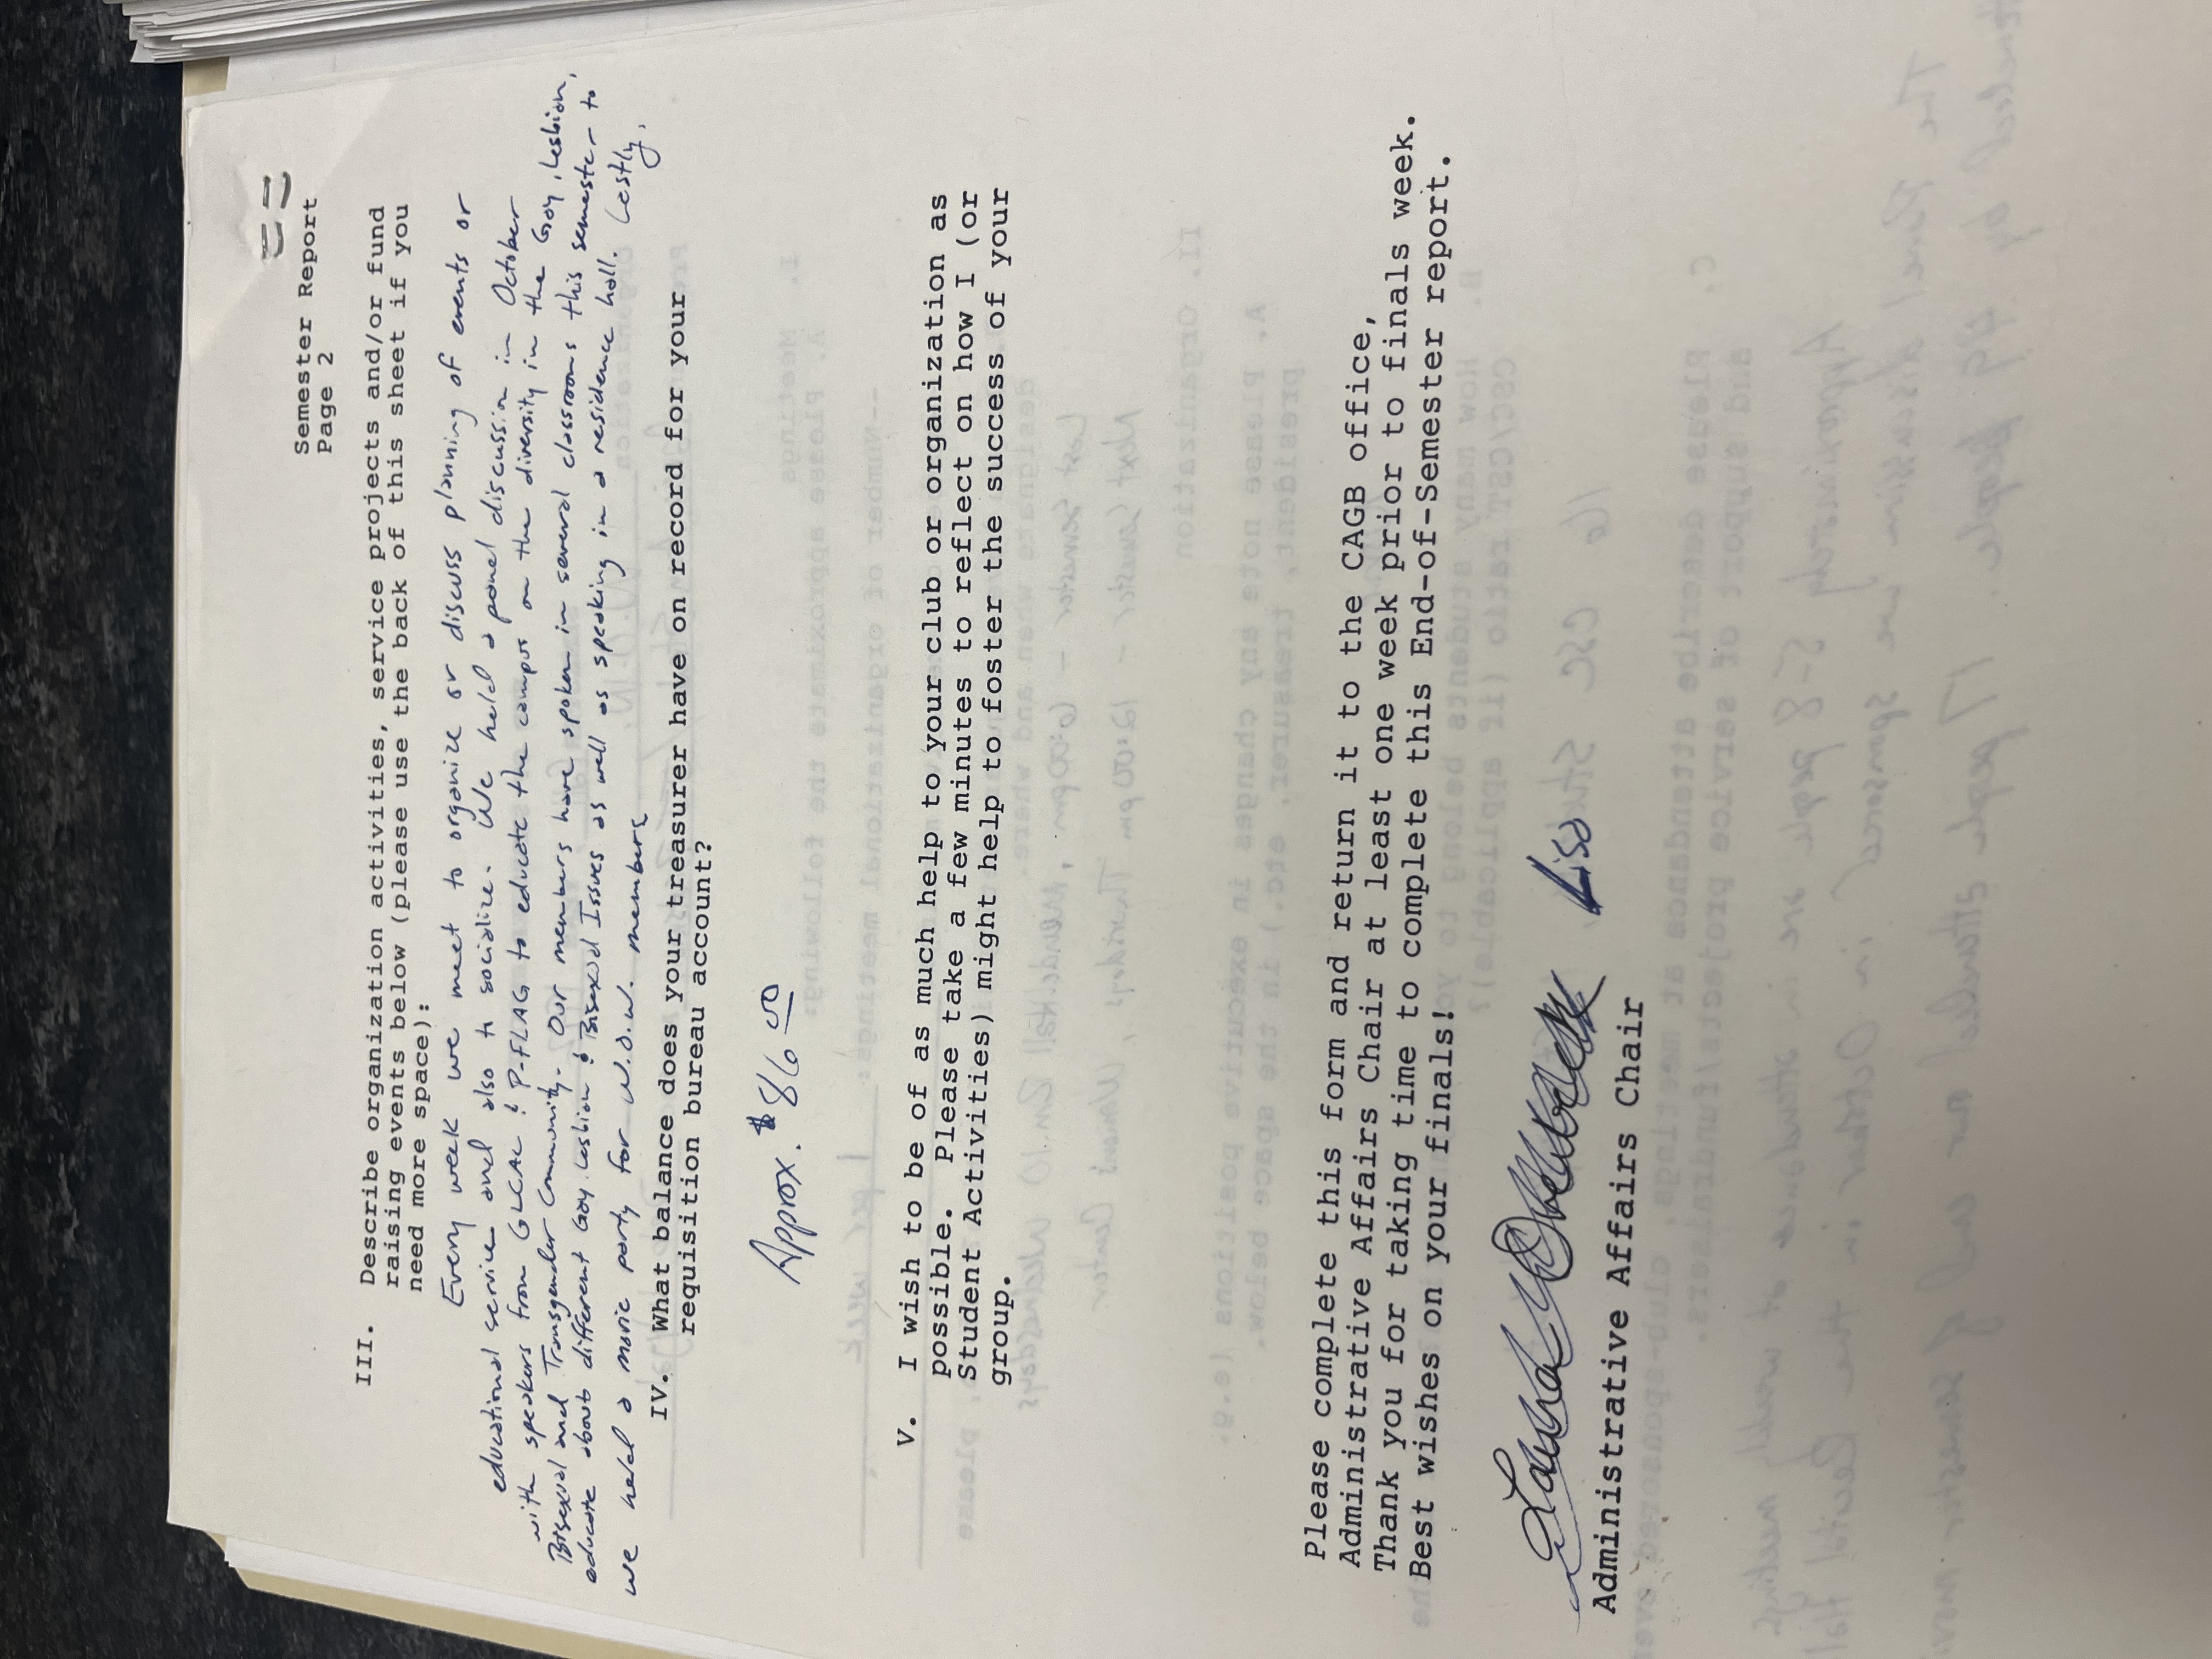 Semester Report
Page 2
III. Describe organization activities, service projects and/or fund
raising events below (please use the back of this sheet if you
need more space):
Every week we meet to organize or discuss planning of events or
educational service and also to socialize. We held a panel discussion in October
with speakers from GLCAC & P-FLAG to educate the campus on the diversity in the Gay, Lesbian,
Bisexual and Transgender Community. Our members have spoken in several classrooms this semester to
educate about different Gay Lesbian & Bisexual Issues as well as speaking in a residence hall. Lastly,
we held a movie party for W.O.W. members
IV. What balance does your treasurer have on record for your
requisition bureau account?
Approx. $86.00
V. I wish to be of as much help to your club or organization as
possible. Please take a few minutes to reflect on how I (or
Student Activities) might help to foster the success of your
group.
Please complete this form and return it to the CAGB office,
Administrative Affairs Chair at least one week prior to finals week.
Thank you for taking time to complete this End-of-Semester report.
Best wishes on your finals!
Laura Lisa
Administrative Affairs Chair